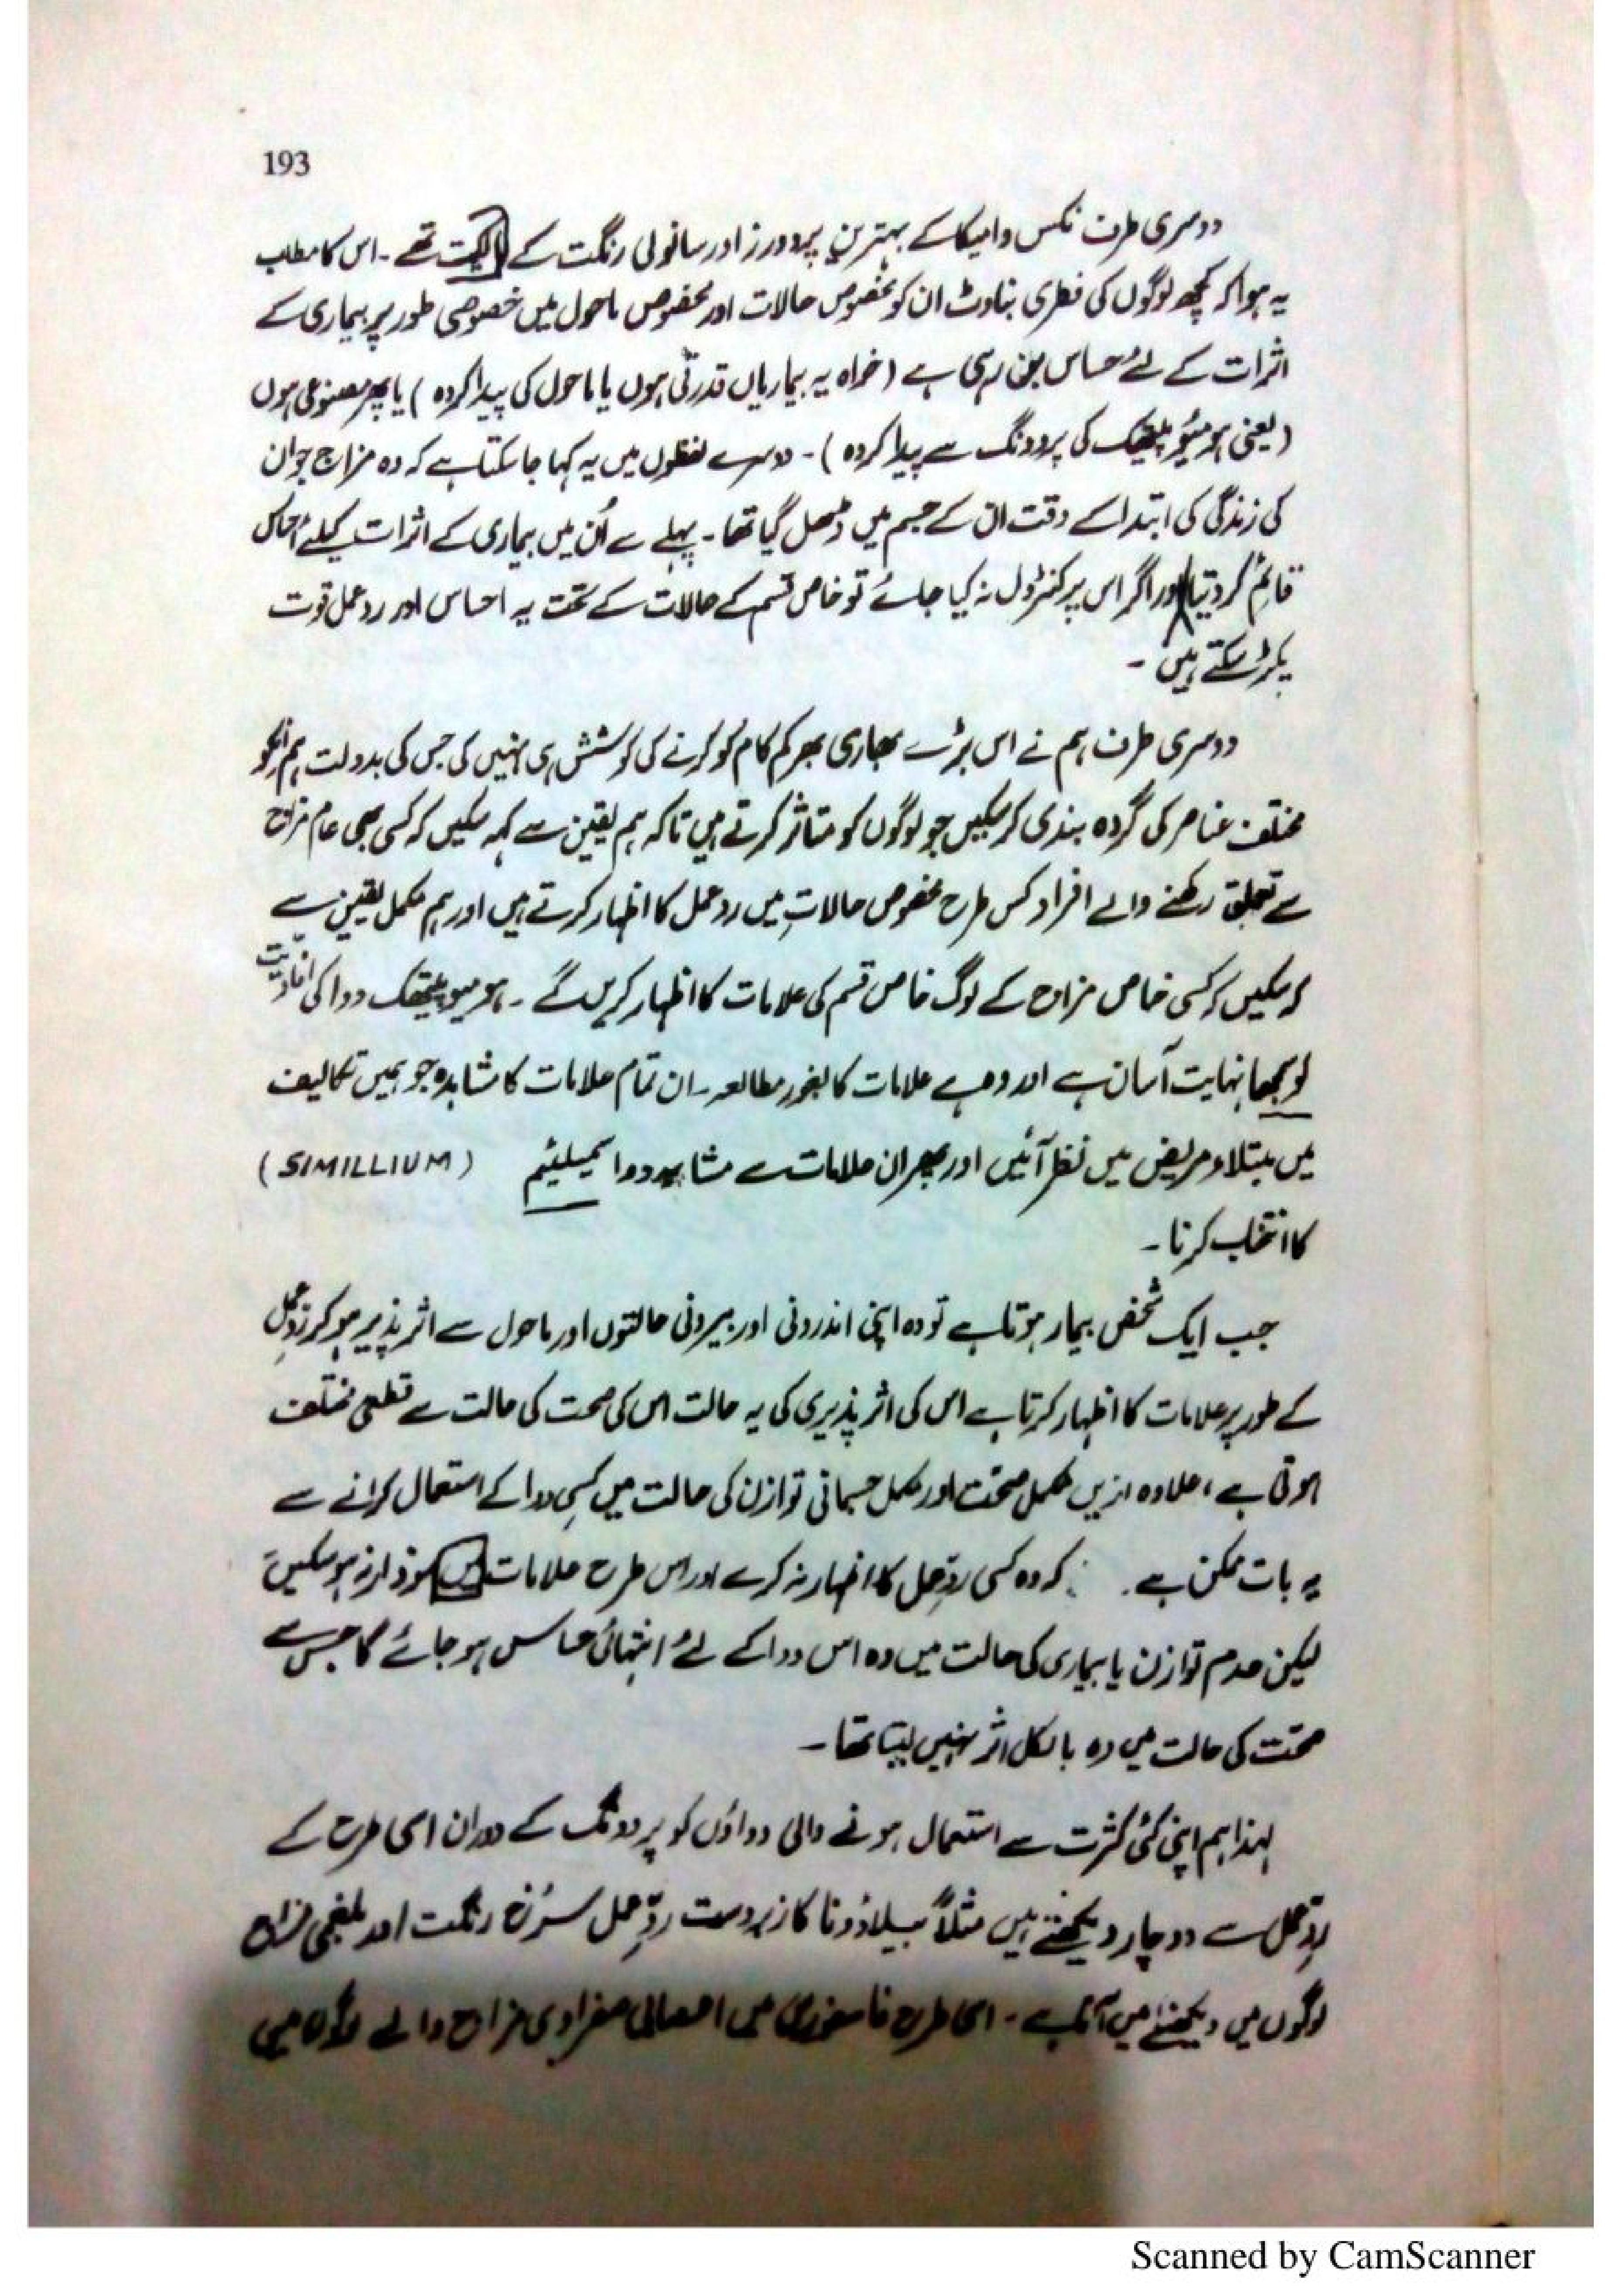 193
دوسری طرف نکس وامیکا کے بہترین پروورز اور سانولی رنگت کے تھے ۔ اس کا مطلب
یہ ہوا کہ کچھ لوگوں کی فطری بناوٹ ان کو مخصوص حالات اور مخصوص ماحول میں خصوصی طور پر بیماری کے
اثرات کے لئے حساس بن رہی ہے (خواہ یہ بیماریاں قدرتی ہوں یا ماحول کی پیدا کردہ) یا پھر مصنوعی ہوں
(یعنی ہومیوپیتھک کی پروونگ سے پیدا کردہ) ۔ دوسرے لفظوں میں یہ کہا جا سکتا ہے کہ وہ مزاج جو ان
کی زندگی کی ابتدا کے وقت ان کے جسم میں ڈھل گیا تھا ۔ پہلے سے اُن میں بیماری کے اثرات کیلئے احساس
قائم کر دیتا اور اگر اس پر کنٹرول نہ کیا جائے تو خاص قسم کے حالات کے تحت یہ احساس اور ردعمل قوت
پکڑ سکتے ہیں ۔
دوسری طرف ہم نے اس بڑے بھاری بھرکم کام کو کرنے کی کوشش ہی نہیں کی جس کی بدولت ہم انکو
مختلف عناصر کی گروہ بندی کر سکیں جو لوگوں کو متاثر کرتے ہیں تاکہ ہم یقین سے کہہ سکیں کہ کسی بھی عام مزاج
سے تعلق رکھنے والے افراد کس طرح مخصوص حالات میں ردعمل کا اظہار کرتے ہیں اور ہم مکمل یقین سے
کہ سکیں کہ کسی خاص مزاج کے لوگ خاص قسم کی علامات کا اظہار کریں گے ۔ ہومیوپیتھک دوا کی افادیت
کو سمجھنا نہایت آسان ہے اور وہ ہے علامات کا بغور مطالعہ ۔ ان تمام علامات کا مشاہدہ جو ہمیں تکالیف
میں مبتلا مریض میں نظر آئیں اور پھر ان علامات سے مشابہہ دوا سیمیلئیم (SIMILLIUM)
کا انتخاب کرنا ۔
جب ایک شخص بیمار ہوتا ہے تو وہ اپنی اندرونی اور بیرونی حالتوں اور ماحول سے اثر پذیر ہو کر ردِعمل
کے طور پر علامات کا اظہار کرتا ہے اس کی اثر پذیری کی یہ حالت اس کی صحت کی حالت سے قطعی مختلف
ہوتی ہے ، علاوہ ازیں مکمل صحت اور مکمل جسمانی توازن کی حالت میں کسی دوا کے استعمال کرانے سے
یہ بات ممکن ہے کہ وہ کسی ردِعمل کا اظہار نہ کرے اور اس طرح علامات نمودار نہ ہو سکیں
لیکن عدم توازن یا بیماری کی حالت میں وہ اس دوا کے لئے انتہائی حساس ہو جائے گا جس سے
صحت کی حالت میں وہ بالکل اثر نہیں لیتا تھا ۔
لہذا ہم اپنی کئی کثرت سے استعمال ہونے والی دواؤں کو پروونگ کے دوران اسی طرح کے
ردِعمل سے دوچار دیکھتے ہیں مثلاً بیلاڈونا کا زبردست ردِّعمل سُرخ رنگت اور بلغمی مزاج
لوگوں میں دیکھنے میں آتا ہے ۔ اسی طرح فاسفورس میں اعصابی صفراوی مزاج والے لوگوں میں
Scanned by CamScanner